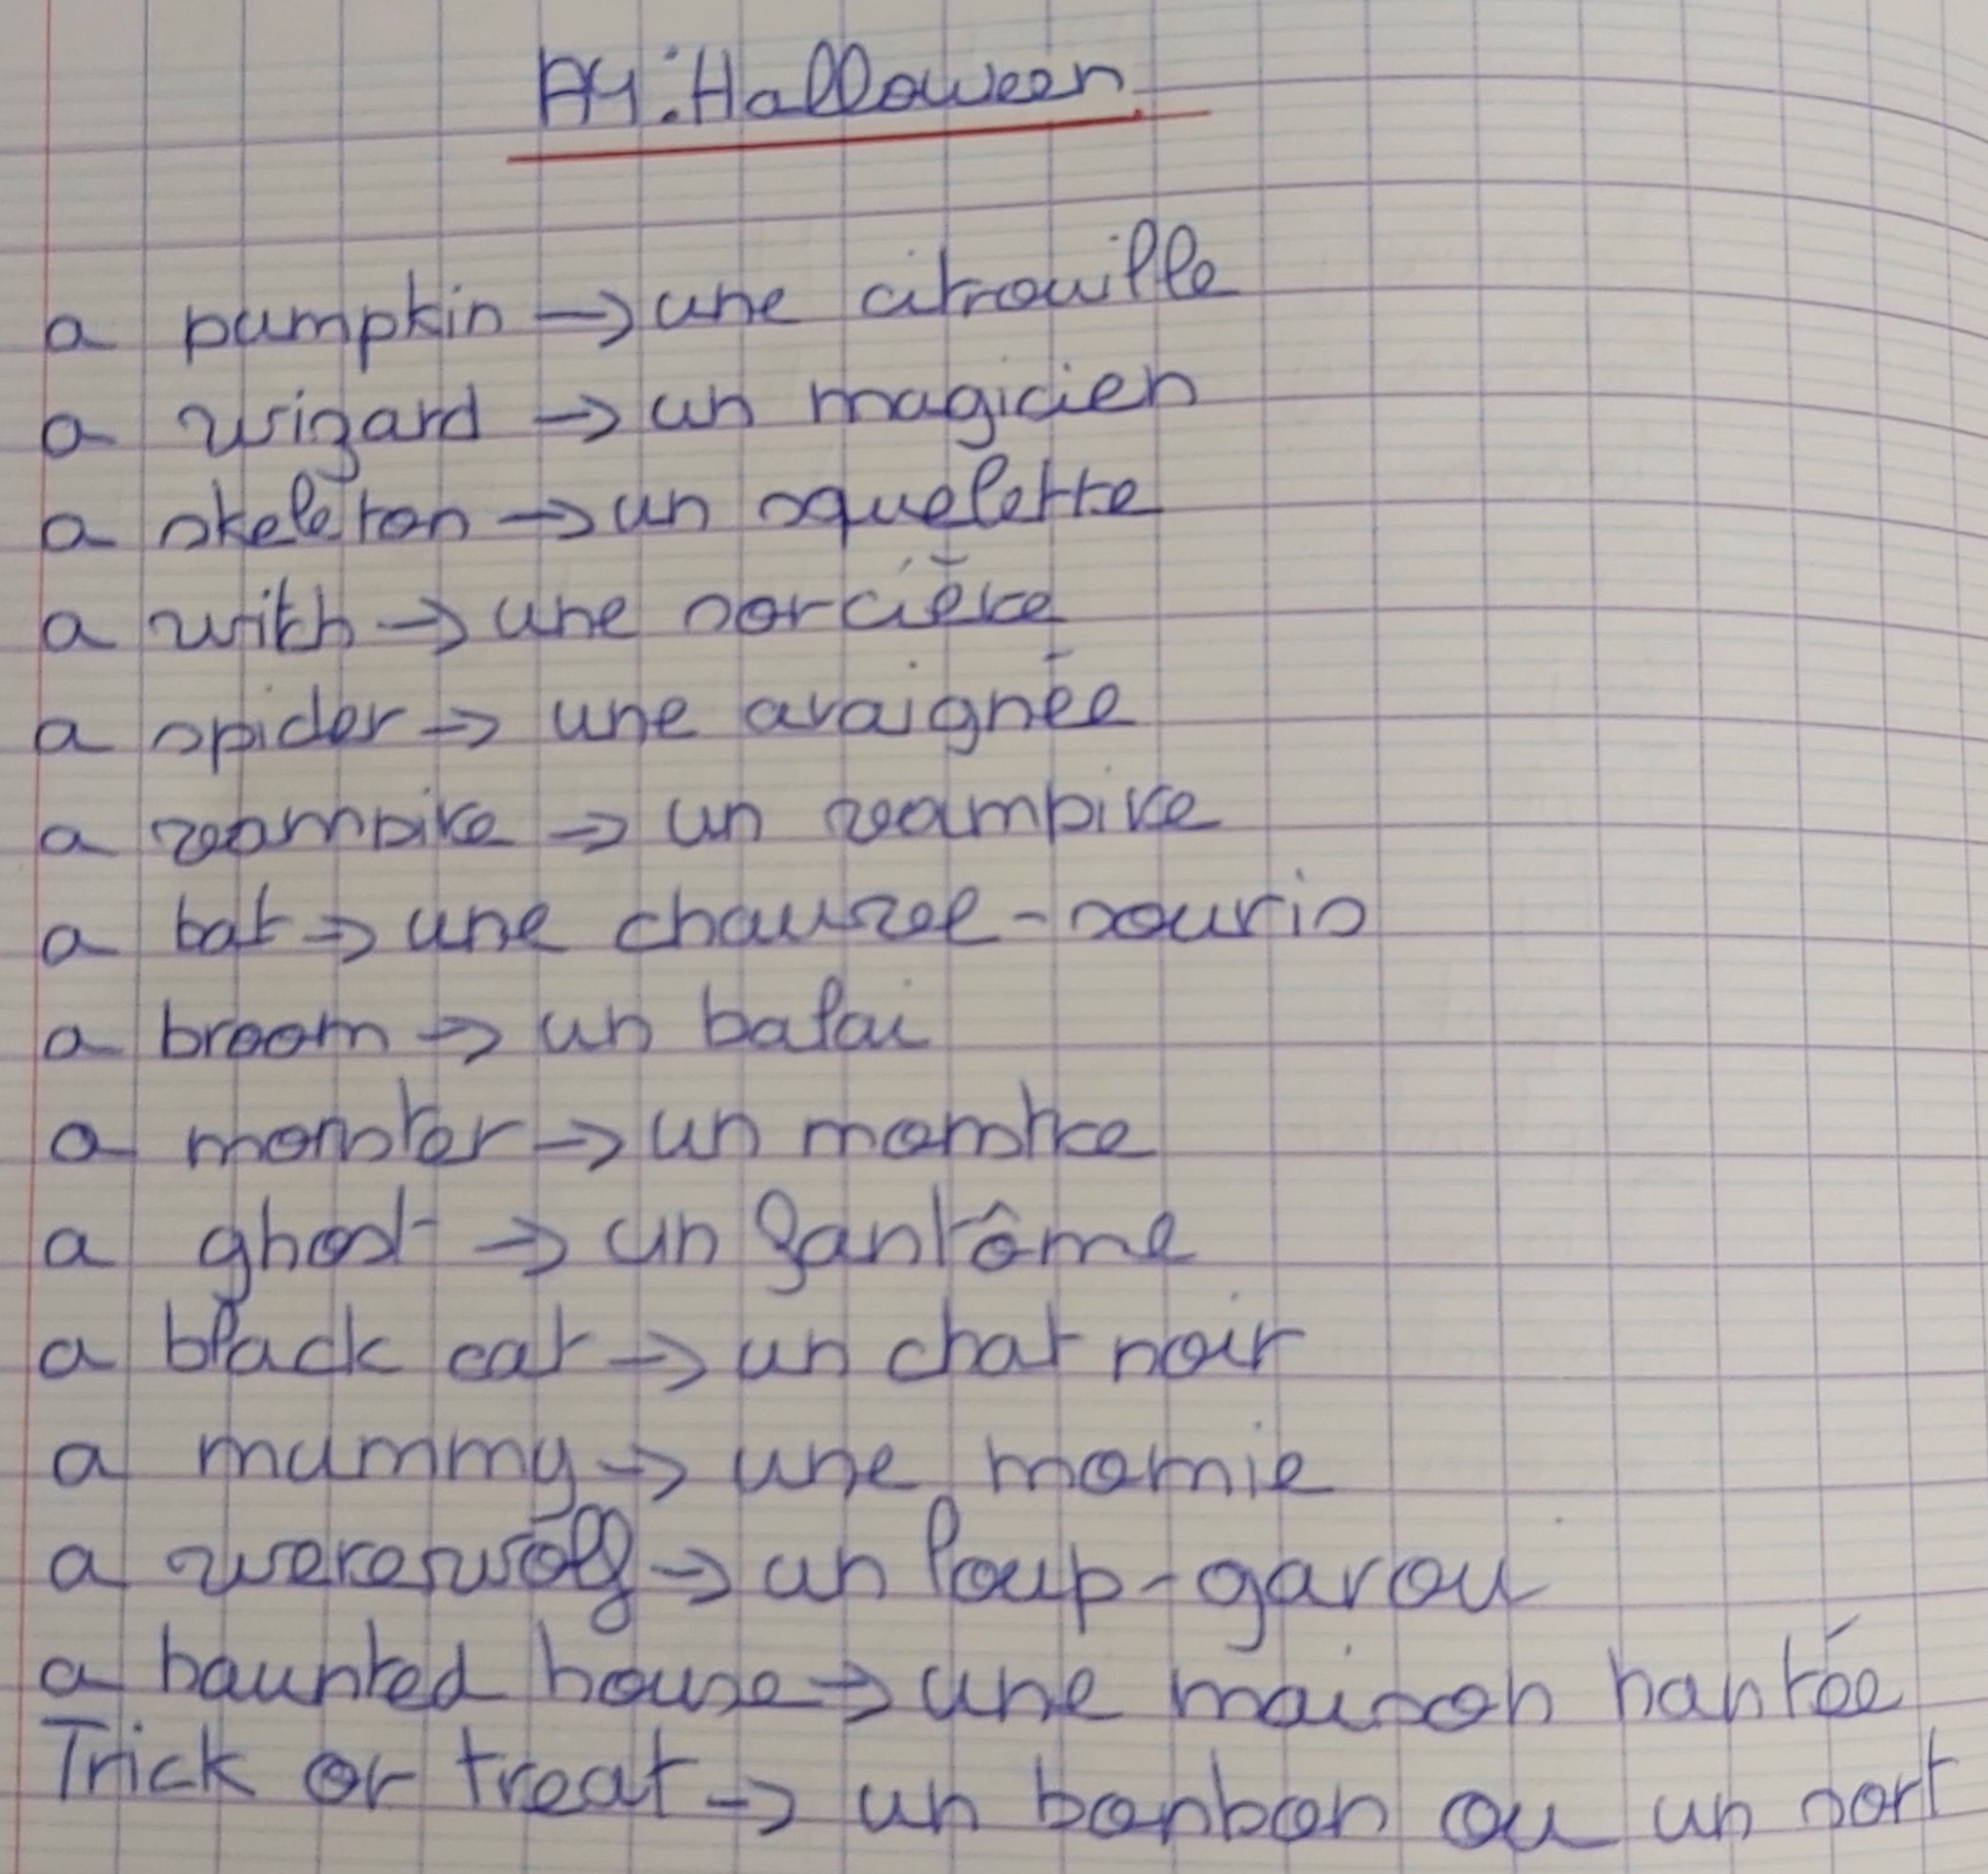 A4: Halloween
a pumpkin → une citrouille
a wizard → un magicien
a skeleton → un squelette
a witch → une sorcière
a spider → une araignée
a vampire → un vampire
a bat → une chauve-souris
a broom → un balai
a monster → un monstre
a ghost → un fantôme
a black cat → un chat noir
a mummy → une momie
a werewolf → un loup-garou
a haunted house → une maison hantée
Trick or treat → un bonbon ou un sort